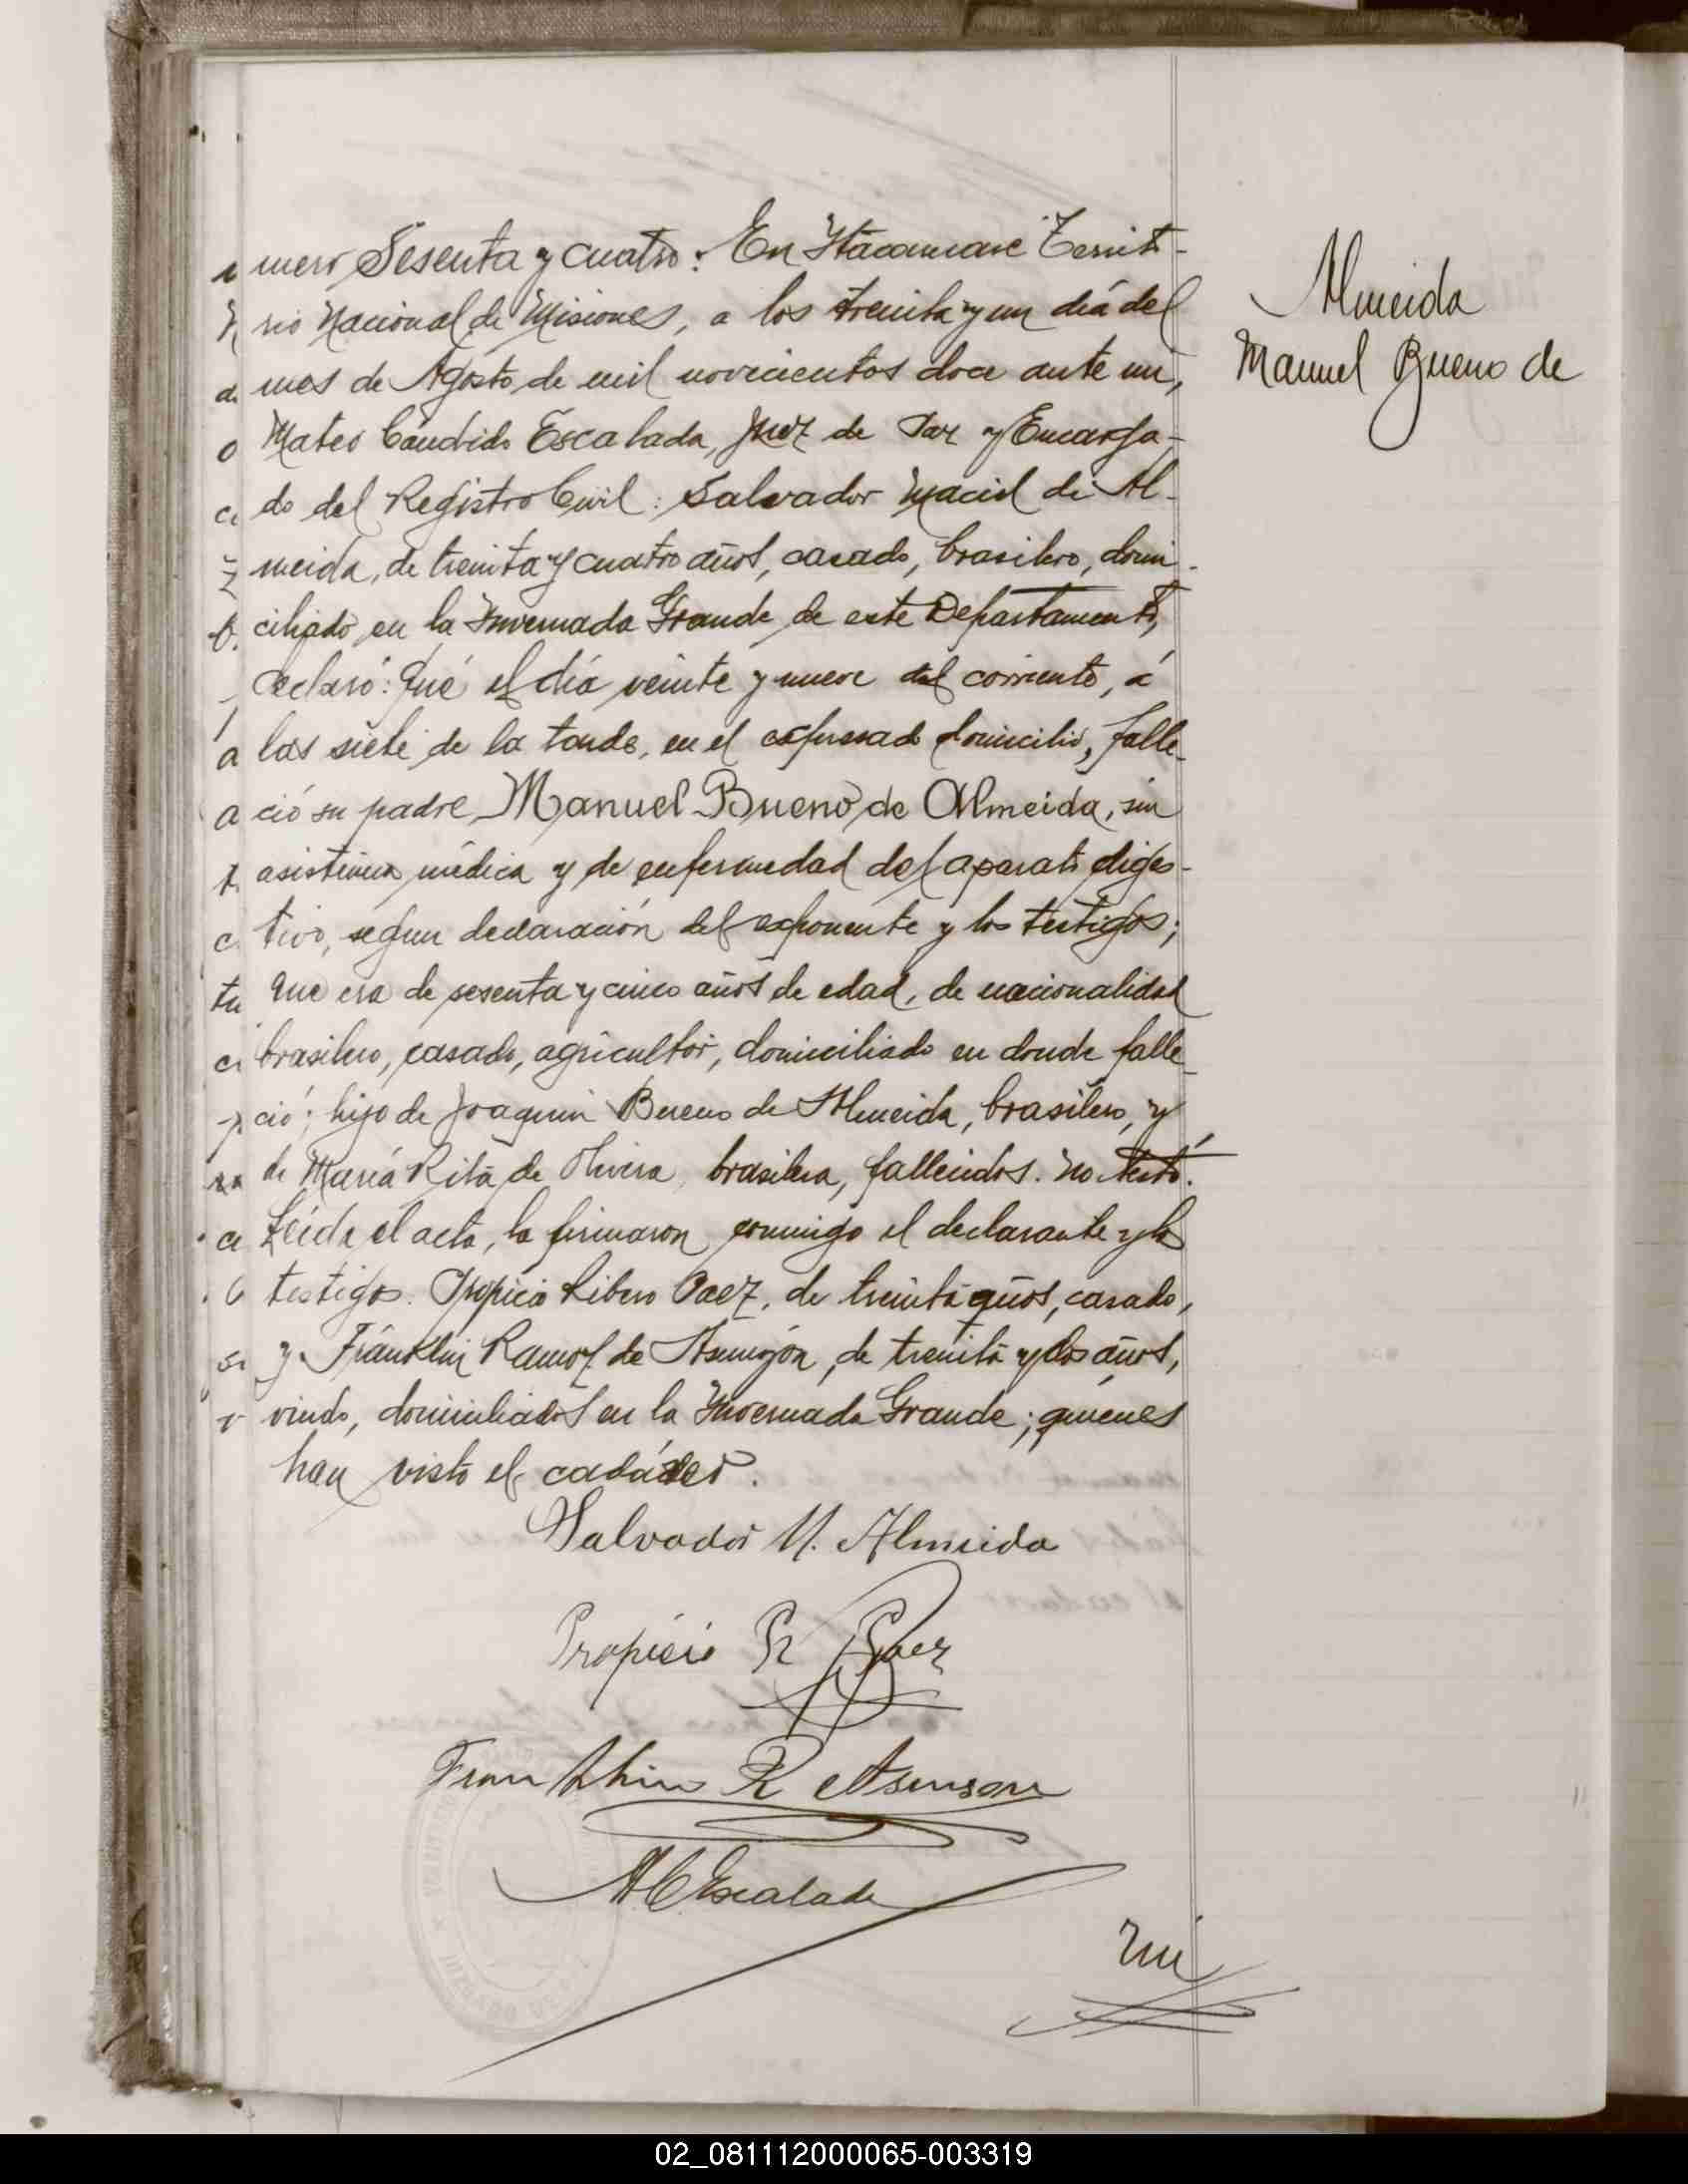 mero Sesenta y cuatro: En Itacaruare Territo-
rio Nacional de Misiones, a los treinta y un día del
mes de Agosto de mil novecientos doce ante mi,
Mateo Cándido Escalada, Juez de Paz y Encarga-
do del Registro Civil: Salvador Maciel de Al-
meida, de treinta y cuatro años, casado, brasilero, domi-
ciliado en la Invernada Grande de este Departamento,
declaró: Qué el día veinte y nueve del corriente, á
las siete de la tarde, en el expresado domicilio, falle-
ció su padre Manuel Bueno de Almeida, sin
asistencia médica y de enfermedad del aparato diges-
tivo, segun declaración del exponente y los testigos;
que era de sesenta y cinco años de edad, de nacionalidad
brasilero, casado, agricultor, domiciliado en donde falle-
ció; hijo de Joaquin Bueno de Almeida, brasilero, y
de María Rita de Olivera, brasilera, fallecidos. No testó.
Leída el acta, la firmaron conmigo el declarante y los
testigos. Propicio Ribero Paez, de treinta años, casado,
y Franklin Ramos de Asunçón, de treinta y dos años,
viudo, domiciliados en la Invernada Grande; quienes
han visto el cadáver.
Salvador M. Almeida
Propicio R Paez
Franklin R Asenson
M C Escalada
Almeida
Manuel Bueno de
02_081112000065-003319